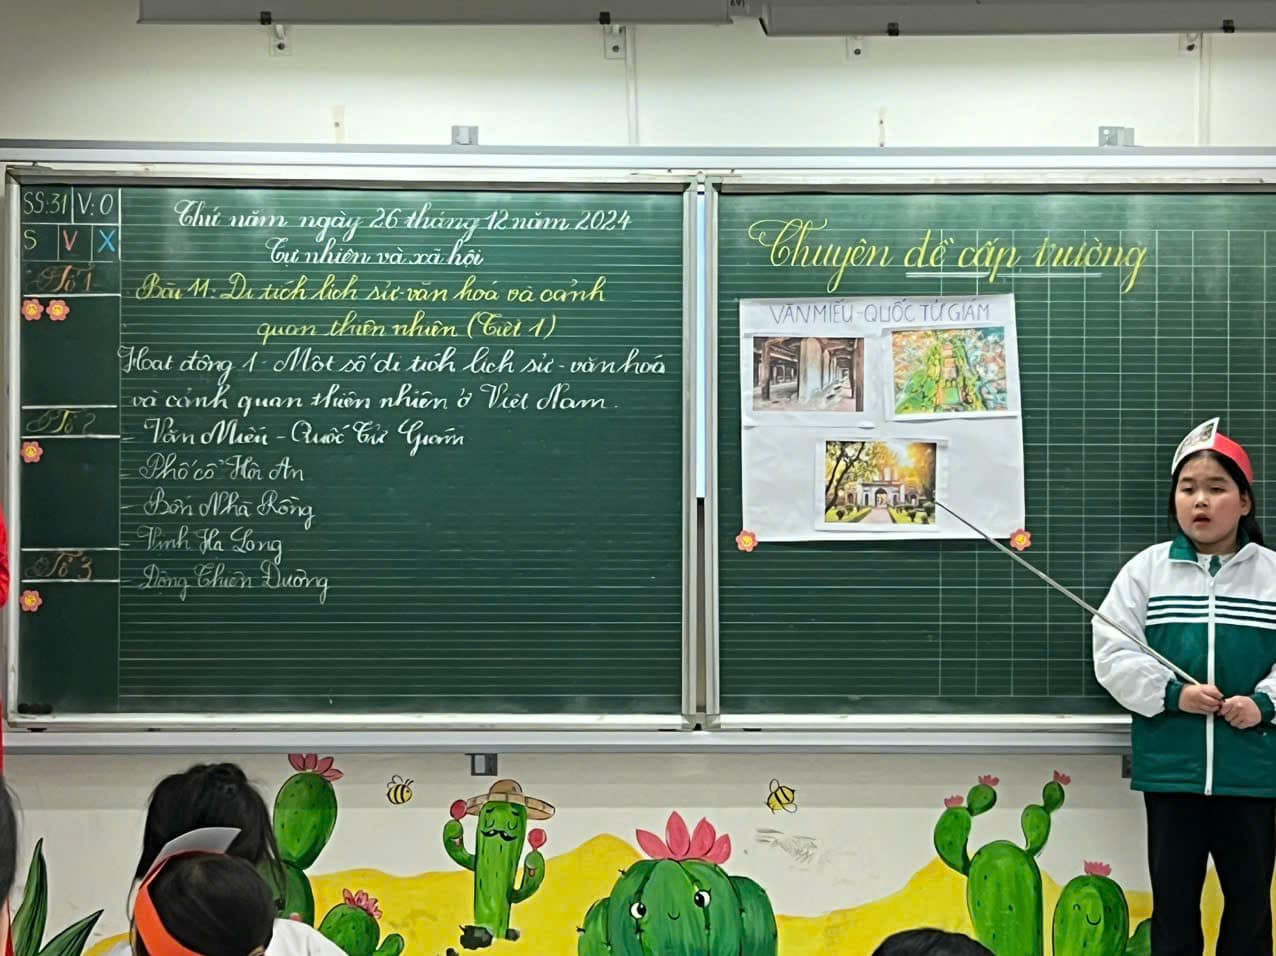 SS:31 V:0
S V X
Tổ 1
Tổ 2
Tổ 3
Thứ năm ngày 26 tháng 12 năm 2024
Tự nhiên và xã hội
Bài 11: Di tích lịch sử - văn hoá và cảnh
quan thiên nhiên (Tiết 1)
Hoạt động 1: Một số di tích lịch sử - văn hoá
và cảnh quan thiên nhiên ở Việt Nam.
- Văn Miếu - Quốc Tử Giám
- Phố cổ Hội An
- Bến Nhà Rồng
- Vịnh Hạ Long
- Động Thiên Đường
Chuyên đề cấp trường
VĂN MIẾU - QUỐC TỬ GIÁM